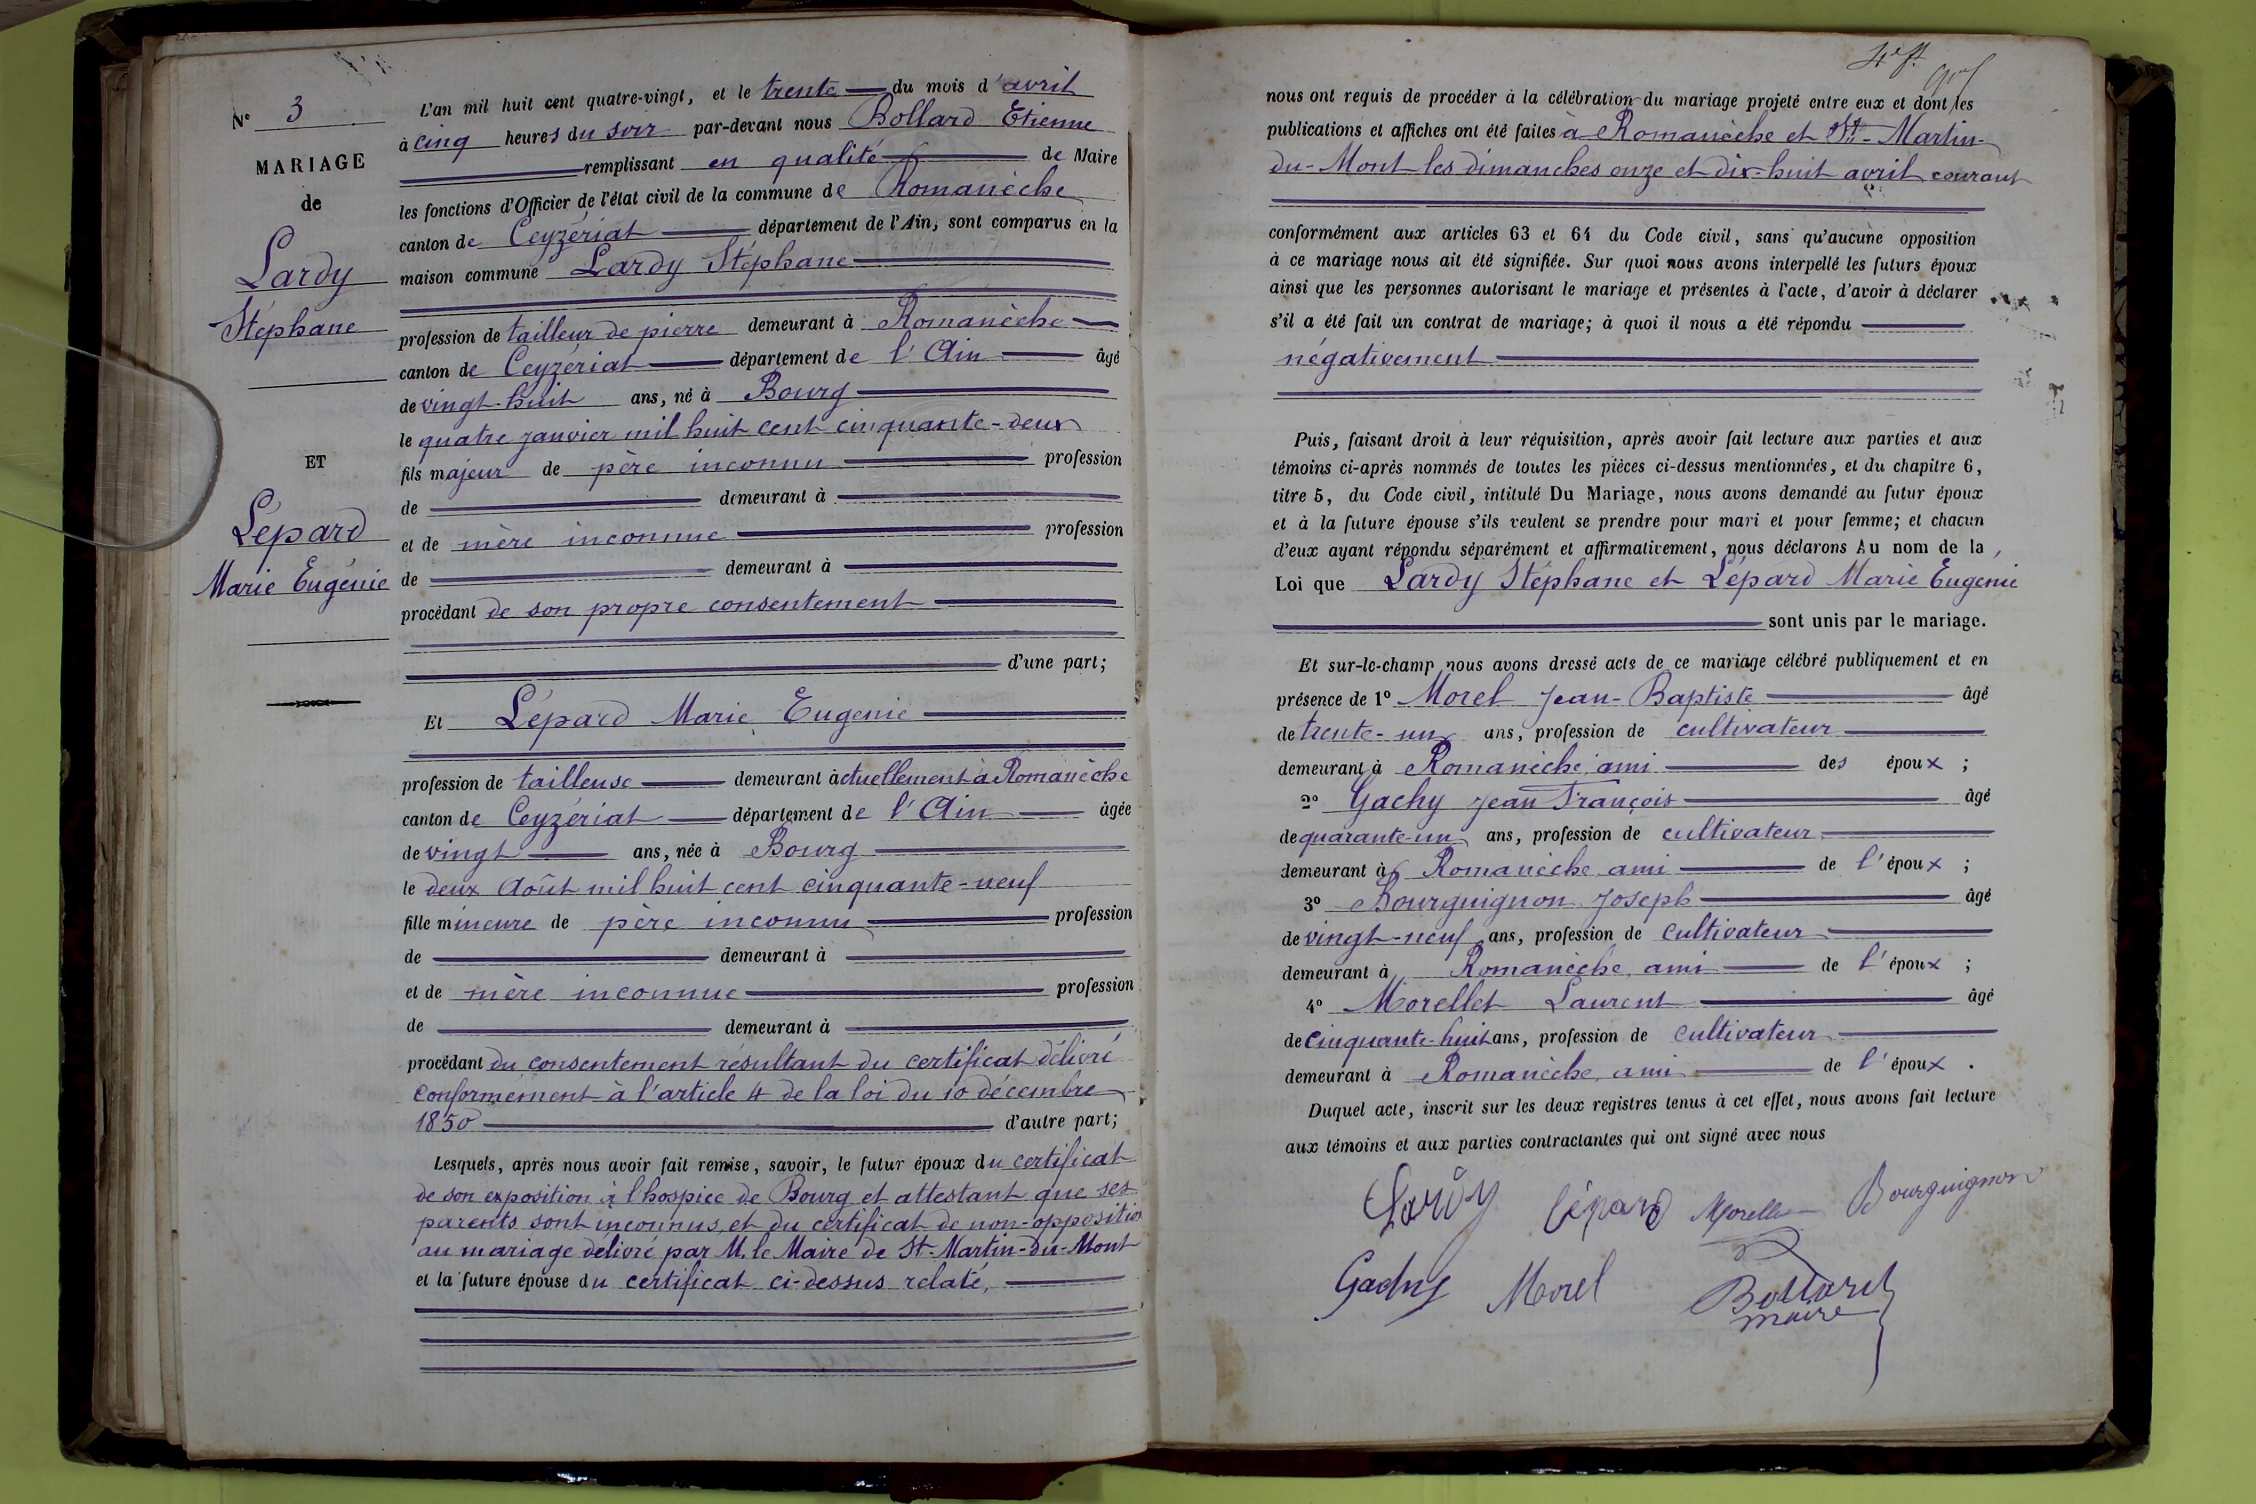 N° 3
MARIAGE
de
Lardy
Stéphane
ET
Lépard
Marie Eugénie
L'an mil huit cent quatre-vingt, et le trente du mois d'avril
à cinq heures du soir par-devant nous Bollard Etienne
remplissant en qualité de Maire
les fonctions d'Officier de l'état civil de la commune de Romanèche
canton de Ceyzériat département de l'Ain, sont comparus en la
maison commune Lardy Stéphane
profession de tailleur de pierre demeurant à Romanèche
canton de Ceyzériat département de l'Ain âgé
de vingt-huit ans, né à Bourg
le quatre janvier mil huit cent cinquante-deux
fils majeur de père inconnu profession
de demeurant à
et de mère inconnue profession
de demeurant à
procédant de son propre consentement
d'une part;
Et Lépard Marie Eugenie
profession de tailleuse demeurant actuellement à Romanèche
canton de Ceyzériat département de l'Ain âgée
de vingt ans, née à Bourg
le deux Août mil huit cent cinquante-neuf
fille mineure de père inconnu profession
de demeurant à
et de mère inconnue profession
de demeurant à
procédant du consentement résultant du certificat délivré
conformément à l'article 4 de la loi du 10 décembre
1850 d'autre part;
Lesquels, après nous avoir fait remise, savoir, le futur époux du certificat
de son exposition à l'hospice de Bourg et attestant que ses
parents sont inconnus, et du certificat de non-opposition
au mariage délivré par M. le Maire de St-Martin-du-Mont
et la future épouse du certificat ci-dessus relaté,
nous ont requis de procéder à la célébration du mariage projeté entre eux et dont les
publications et affiches ont été faites à Romanèche et St-Martin-
du-Mont les dimanches onze et dix-huit avril courant
conformément aux articles 63 et 64 du Code civil, sans qu'aucune opposition
à ce mariage nous ait été signifiée. Sur quoi nous avons interpellé les futurs époux
ainsi que les personnes autorisant le mariage et présentes à l'acte, d'avoir à déclarer
s'il a été fait un contrat de mariage; à quoi il nous a été répondu
négativement
Puis, faisant droit à leur réquisition, après avoir fait lecture aux parties et aux
témoins ci-après nommés de toutes les pièces ci-dessus mentionnées, et du chapitre 6,
titre 5, du Code civil, intitulé Du Mariage, nous avons demandé au futur époux
et à la future épouse s'ils veulent se prendre pour mari et pour femme; et chacun
d'eux ayant répondu séparément et affirmativement, nous déclarons Au nom de la
Loi que Lardy Stéphane et Lépard Marie Eugenie
sont unis par le mariage.
Et sur-le-champ nous avons dressé acte de ce mariage célébré publiquement et en
présence de 1° Morel Jean-Baptiste âgé
de trente-un ans, profession de cultivateur
demeurant à Romanèche, ami des époux ;
2° Gachy Jean François âgé
de quarante-un ans, profession de cultivateur
demeurant à Romanèche ami de l'époux ;
3° Bourguignon Joseph âgé
de vingt-neuf ans, profession de cultivateur
demeurant à Romanèche, ami de l'époux ;
4° Morellet Laurent âgé
de cinquante-huit ans, profession de cultivateur
demeurant à Romanèche, ami de l'époux .
Duquel acte, inscrit sur les deux registres tenus à cet effet, nous avons fait lecture
aux témoins et aux parties contractantes qui ont signé avec nous
Lardy Lépard Morellet Bourguignon
Gachy Morel Bollard
maire